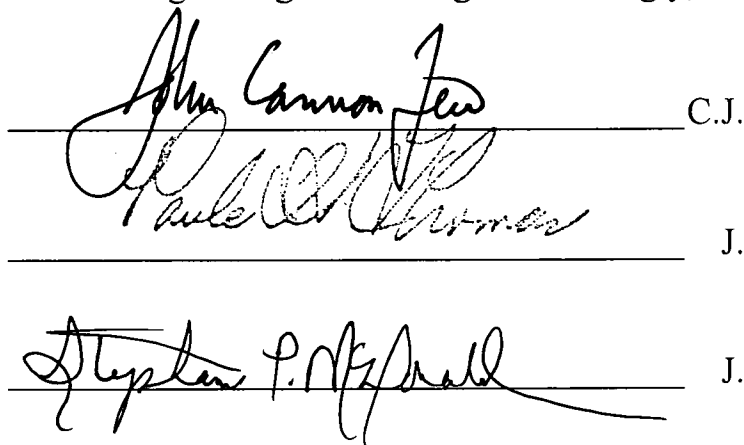 John Cannon Few C.J.
Paula H. Thomas J.
Stephanie P. McDonald J.